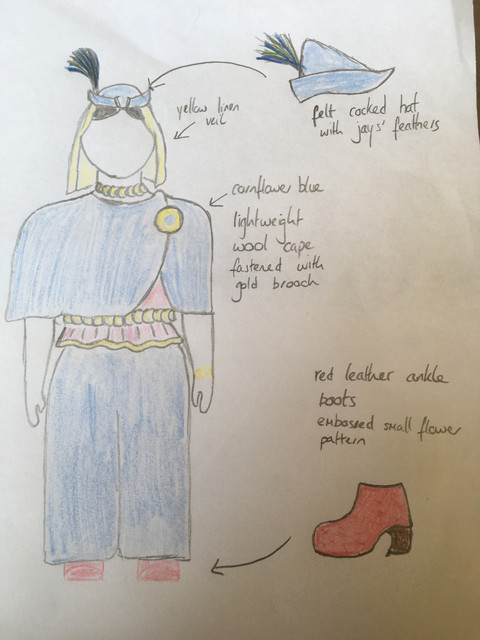 felt cocked hat
with jays' feathers
yellow linen
veil
cornflower blue
lightweight
wool cape
fastened with
gold brooch
red leather ankle
boots
embossed small flower
pattern